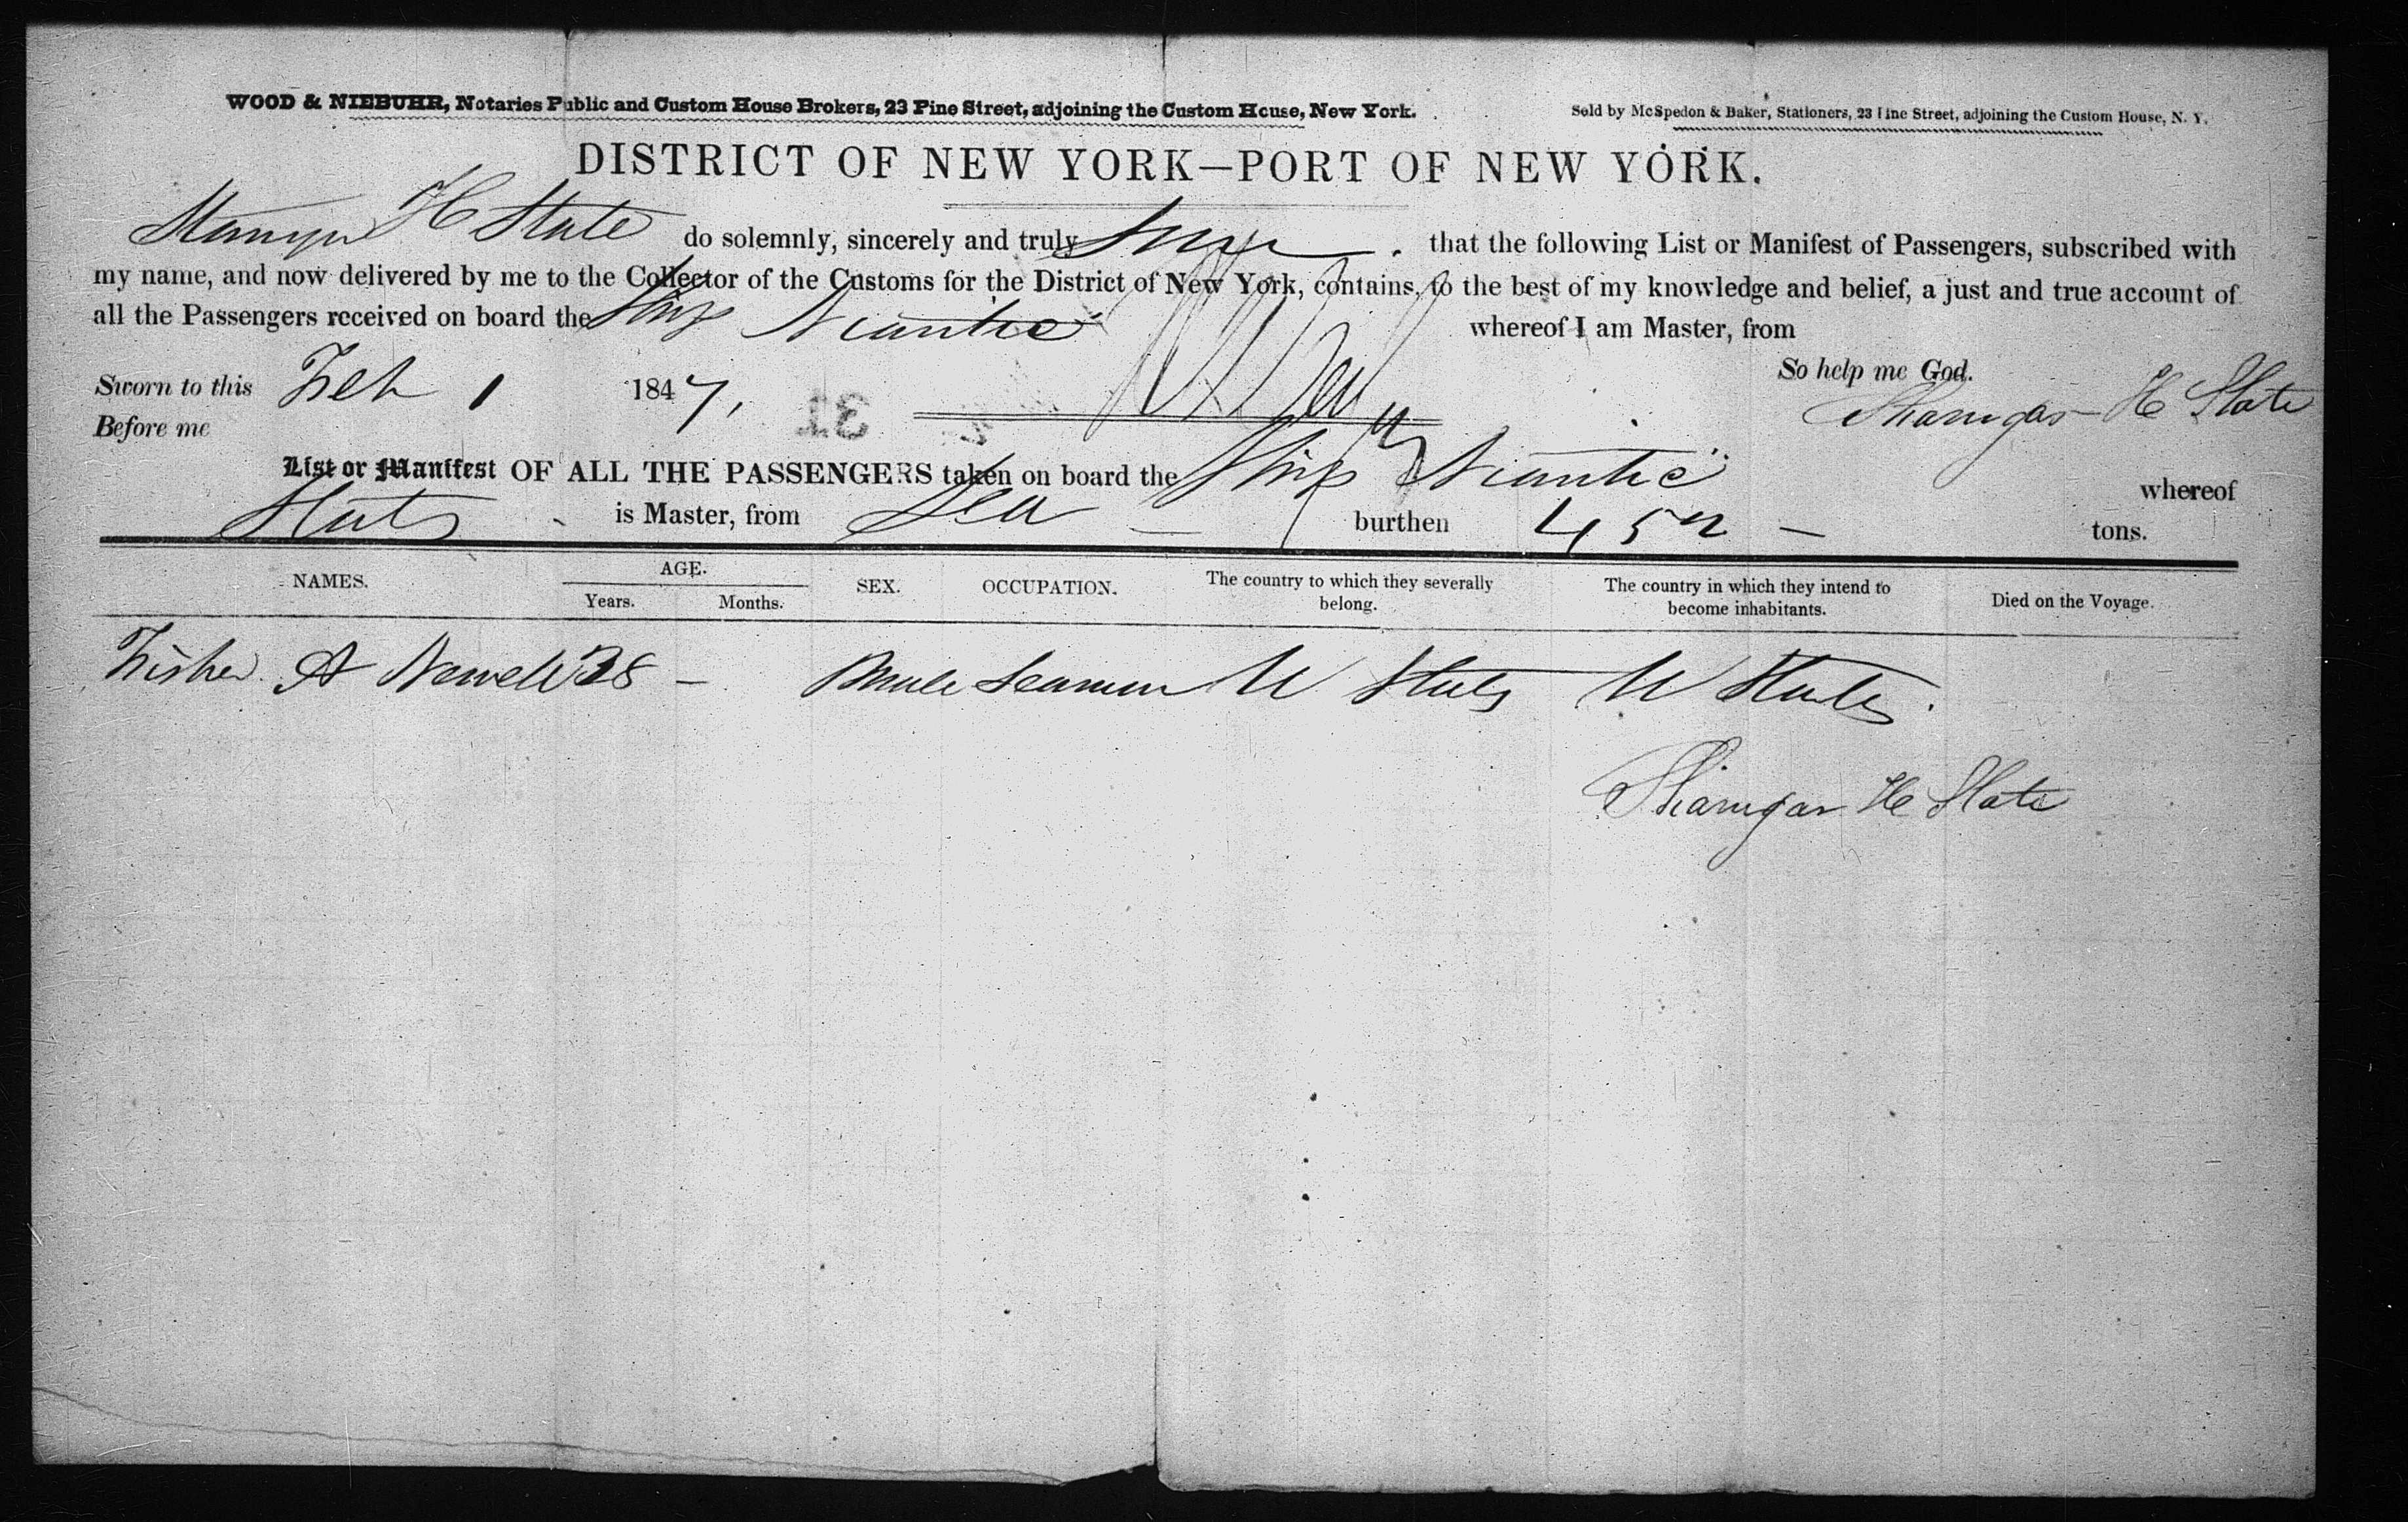 WOOD & NIEBUHR, Notaries Public and Custom House Brokers, 23 Pine Street, adjoining the Custom House, New York.
Sold by McSpedon & Baker, Stationers, 23 Pine Street, adjoining the Custom House, N. Y.
DISTRICT OF NEW YORK—PORT OF NEW YORK.
H Slate do solemnly, sincerely and truly swear that the following List or Manifest of Passengers, subscribed with
my name, and now delivered by me to the Collector of the Customs for the District of New York, contains, to the best of my knowledge and belief, a just and true account of
all the Passengers received on board the Ship Niantic whereof I am Master, from
So help me God.
Sworn to this Feb 1 1847, Shamgar H Slate
Before me
31
List or Manifest OF ALL THE PASSENGERS taken on board the Ship "Niantic" whereof
Slate is Master, from Sea burthen 452 tons.
NAMES. AGE. Years. Months. SEX. OCCUPATION. The country to which they severally belong. The country in which they intend to become inhabitants. Died on the Voyage.
Fisher A Newell 38 — Male Seaman U States U States.
Shamgar H Slate